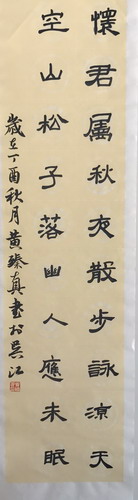 懷君屬秋夜散步詠涼天
空山松子落幽人應未眠
歲在丁酉秋月黃臻真書於吳江